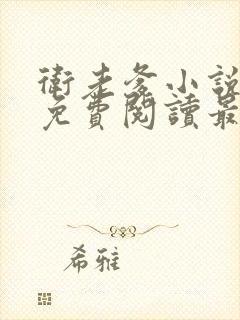 衛走爸小說
免費閱讀最
希雅